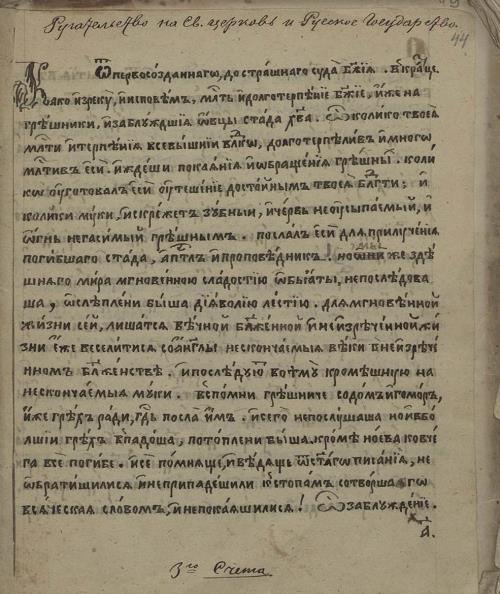 Ругательство на Св. церковь и Русское Государство.
44
Ѿ первосозданнагѡ, до страшнагѡ суда Бж҃їѧ. Вкратце.
Како изреку, и исповѣмъ, мл҃ть и долготерпѣнїе Бж҃їе, и҆же на
грѣшники, и заблуждшїѧ ѻ҆вцы стада хр҃ва. Ѽ колико твоеѧ
мл҃ти и терпѣнїѧ всевышнїи влдⷣкѡ, долготерпѣливъ и многѡ
мл҃тивъ еси. и ждеши покаѧнїѧ и ѡбращенїѧ грѣшны. коли
кѡ оуготовалъ еси оутешенїе достойнымъ твоеѧ блгⷣти; и
колики муки, и скрежетъ зубныи, и червь неоусыпаемый, и
ѻгнь негасимый грѣшнымъ. послалъ еси для прилученїѧ
погибшаго стада, ап҃тлъ и проповѣдникъ. но ѡни же здѣ
шнѧго мира мгновенною сладостїю ѡбьѧты, непослѣдова
ша, ѡслѣплени быша дїѧволю лестїю. для мгновенной
жизни сей, лишатсѧ вѣчной бл҃женной и неизрѣченной жи
зни еже веселитисѧ со аг҃глы нескончаемыѧ вѣки в неизрѣче
нномъ бл҃женствѣ. и послѣдую вотму кромѣшную на
нескончаемыѧ муки. вспомни грѣшниче содомъ и гоморъ,
и҆же грѣхъ ради, гдⷭ҇ь посла имъ. и сего непослушаша но и вбо
лшїи грѣхъ впадоша, потоплени быша, кромѣ ноева ковче
га все погибе. и се помнѧще, и вѣдѧще ѿ ст҃агѡ писанїѧ, не
ѡбратишилисѧ и неприпадешили къ стопамъ сотворшагѡ
всѧческаѧ словомъ, и непокаѧшилисѧ! Ѽ заблужденїе.
а҃.
3го Счета.